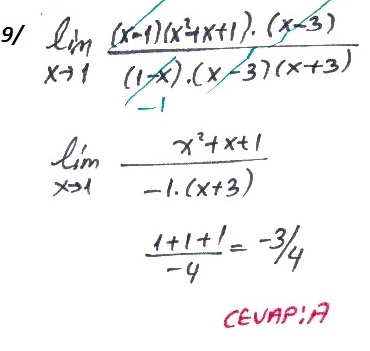 9/ lim x→1 (x-1)(x²+x+1).(x-3) / (1-x).(x-3)(x+3)
-1
lim x→1 x²+x+1 / -1.(x+3)
1+1+1 / -4 = -3/4
CEVAP:A